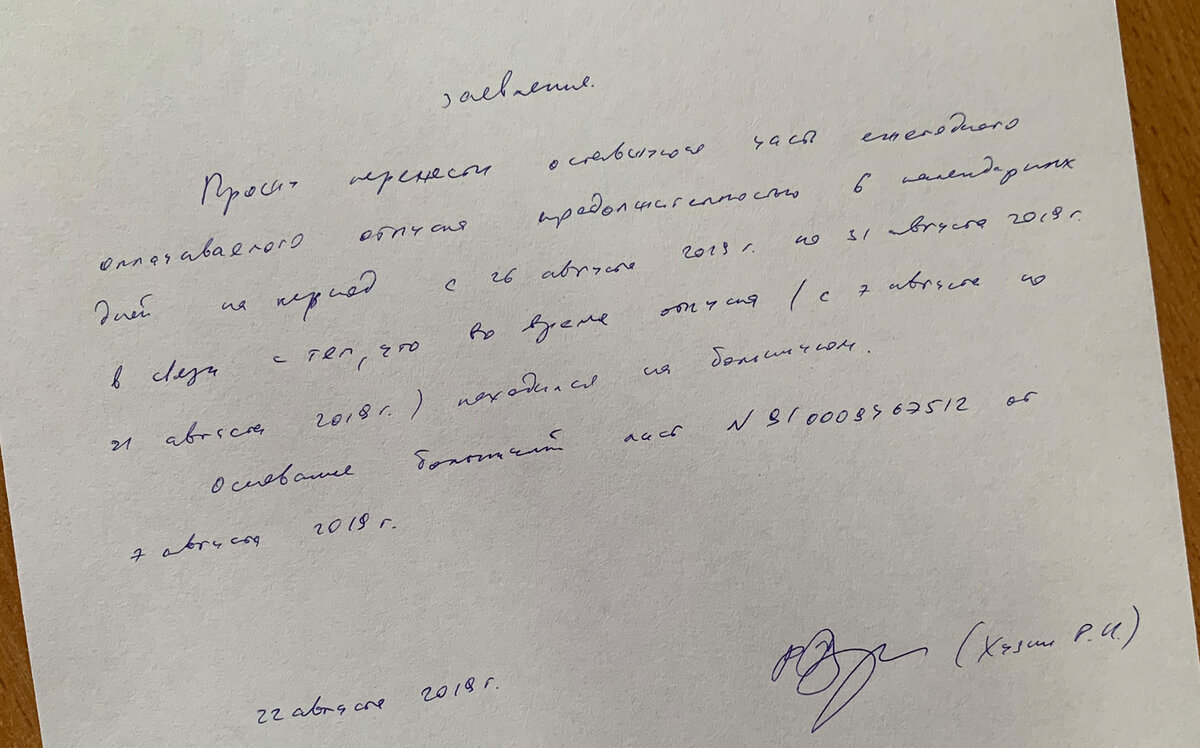 заявление.
Прошу перенести оставшуюся часть ежегодного
оплачиваемого отпуска продолжительностью 6 календарных
дней на период с 26 августа 2019 г. по 31 августа 2019 г.
в связи с тем, что во время отпуска (с 7 августа по
21 августа 2019 г.) находился на больничном.
Основание больничный лист N 910009467512 от
7 августа 2019 г.
22 августа 2019 г.
(Хузин Р.И.)